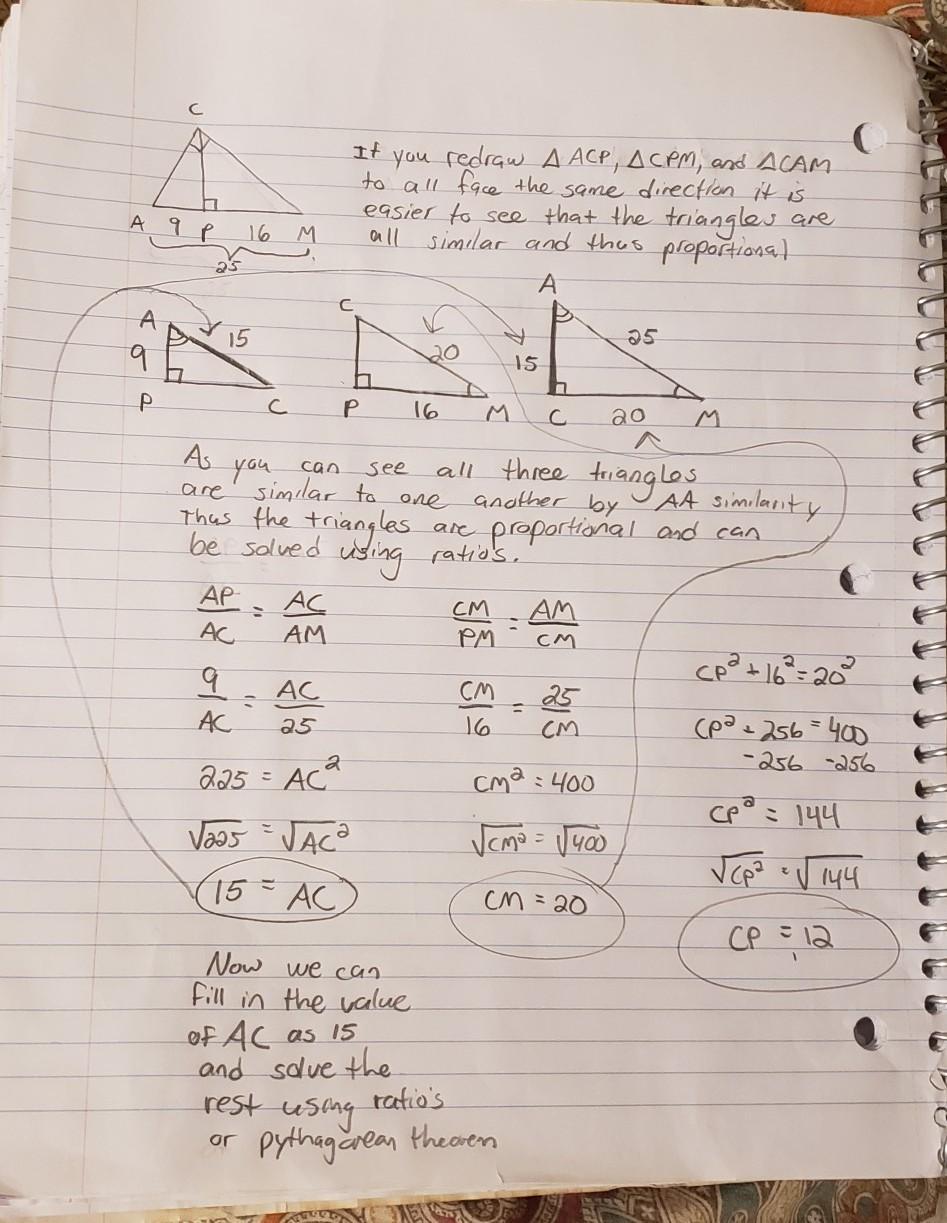 C
If you redraw △ ACP, △CPM, and △CAM
to all face the same direction it is
easier to see that the triangles are
all similar and thus proportional
A 9 P 16 M
25
A 9 15 P C
C 20 P 16 M
A 15 25 C 20 M
As you can see all three triangles
are similar to one another by AA similarity
Thus the triangles are proportional and can
be solved using ratio's.
AP/AC = AC/AM
9/AC = AC/25
225 = AC²
√225 = √AC²
15 = AC
CM/PM = AM/CM
CM/16 = 25/CM
CM² = 400
√CM² = √400
CM = 20
CP² + 16² = 20²
CP² + 256 = 400
-256 -256
CP² = 144
√CP² = √144
CP = 12
Now we can
fill in the value
of AC as 15
and solve the
rest using ratio's
or pythagorean theorem